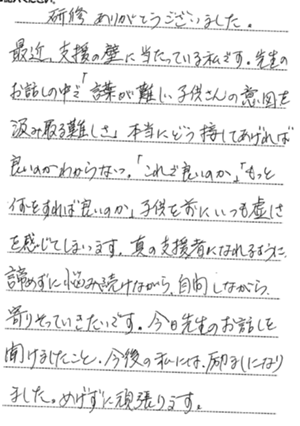 研修ありがとうございました。
最近、支援の壁に当たっている私です。先生の
お話しの中で「言葉が難しい子供さんの意図を
汲み取る難しさ」本当にどう接してあげれば
良いのかわからないつ。「これで良いのか」「もっと
何をすれば良いのか」子供を前にいつも虚しさ
を感じてしまいます。真の支援者になれるように、
諦めずに悩み続けながら、自問しながら、
寄りそっていきたいです。今日先生のお話しを
聞けましたこと、今後の私には、励みになり
ました。めげずに頑張ります。